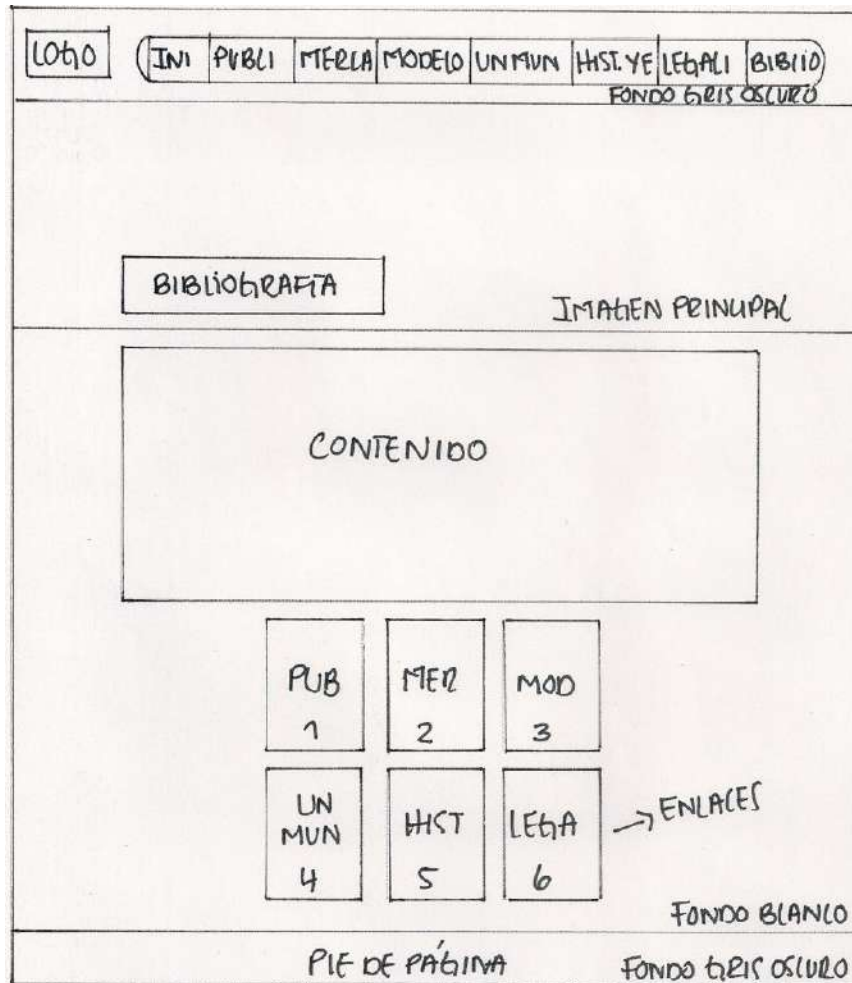 LOGO
INI PUBLI MERCA MODELO UN MUN HIST. YE LEGALI BIBLIO
FONDO GRIS OSCURO
BIBLIOGRAFÍA
IMAGEN PRINCIPAL
CONTENIDO
PUB MER MOD
1 2 3
UN
MUN HIST LEGA → ENLACES
4 5 6
FONDO BLANCO
PIE DE PÁGINA FONDO GRIS OSCURO